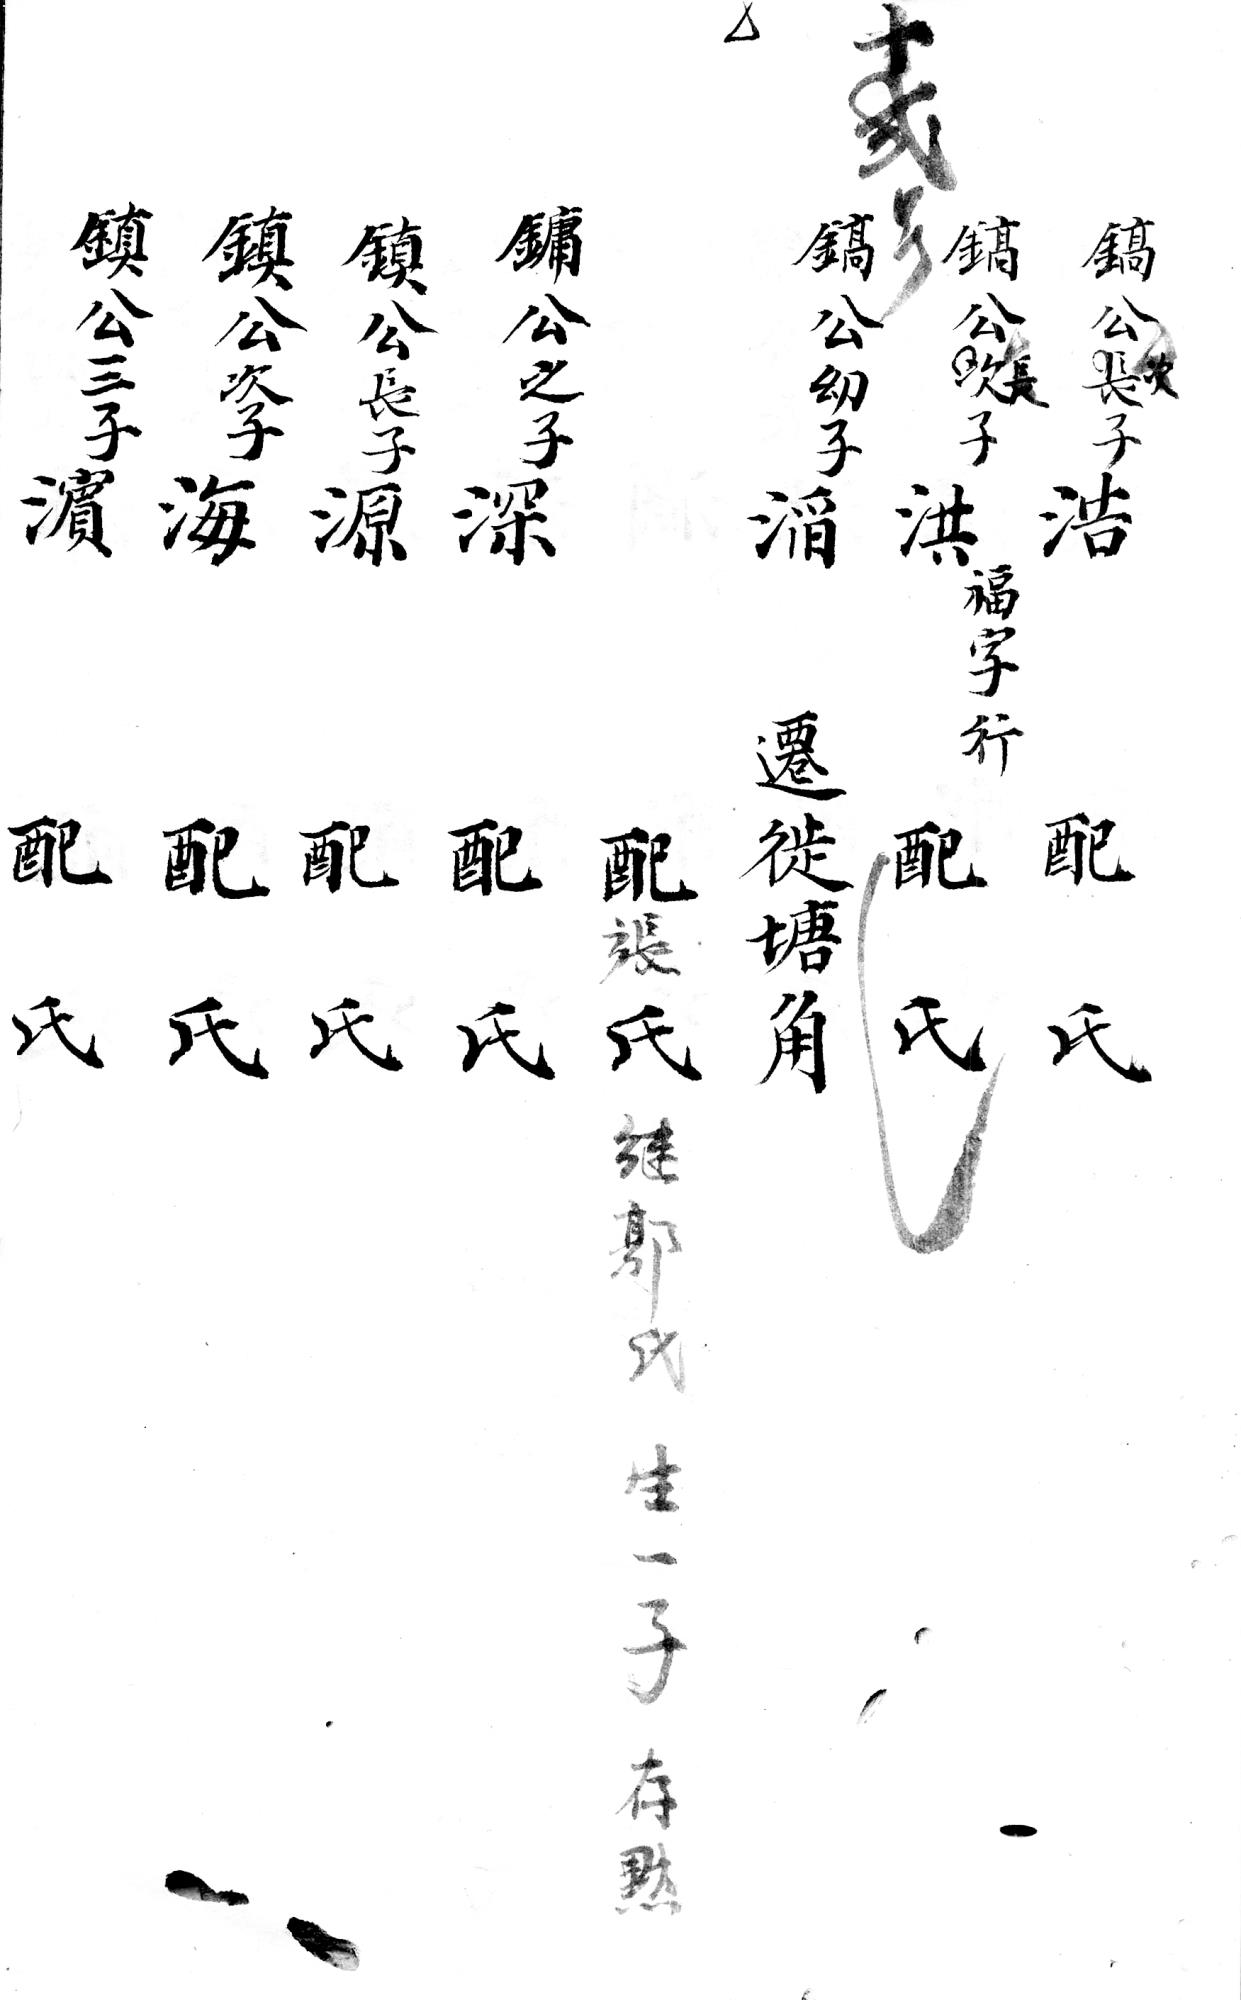 十弍号
鎬公長次子浩 配 氏
鎬公次長子洪 福字行 配 氏
鎬公幼子湣 遷徙塘角
配張氏 継郭氏 生一子 存黙
鏞公之子深 配 氏
鎮公長子源 配 氏
鎮公次子海 配 氏
鎮公三子濵 配 氏